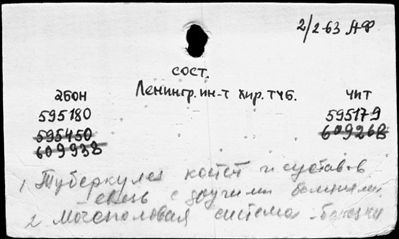 2/2-63 АФ
сост.
Ленингр. ин-т хир. тчб.
абон чит
595180 595179
595450 609268
609938
1 Туберкулез костей и суставов
связь с другими болезнями
2 Мочеполовая система